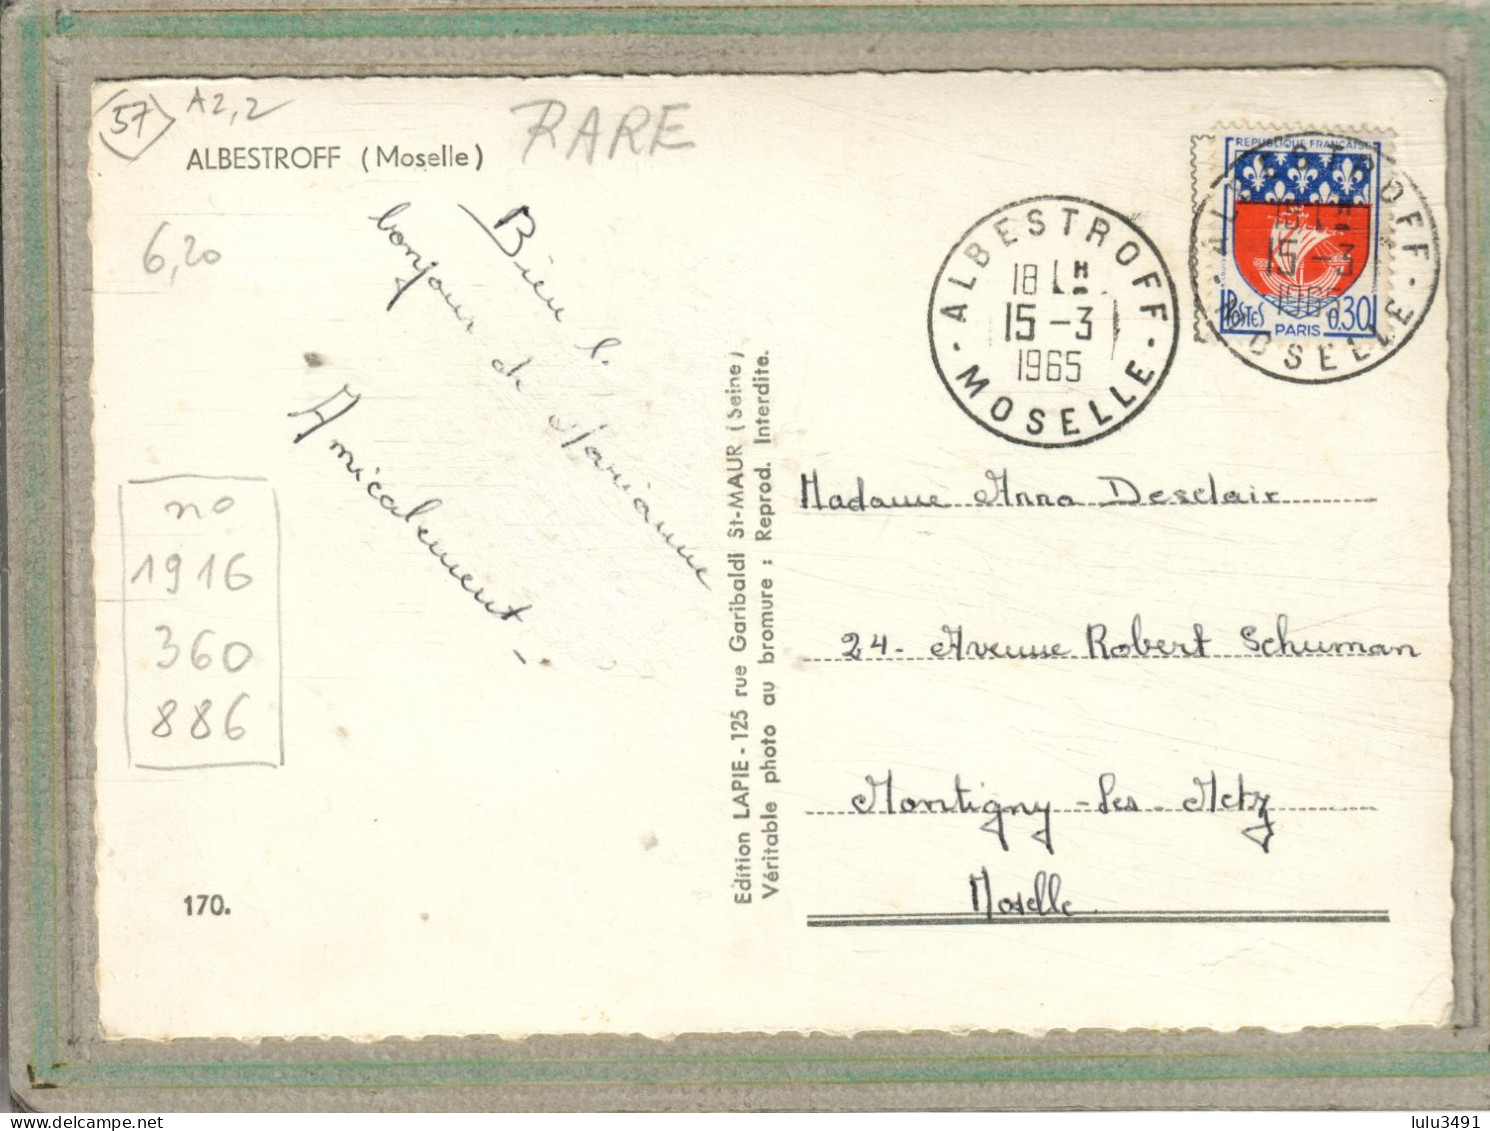 57
A2,2
RARE
ALBESTROFF (Moselle)
6,20
Bien
bonjour de Marianne
Amicalement -
no
1916
360
886
170.
Edition LAPIE - 125 rue Garibaldi St-MAUR (Seine)
Véritable photo au bromure : Reprod. Interdite.
ALBESTROFF
18 H
15 -3
1965
- MOSELLE -
REPUBLIQUE FRANÇAISE
POSTES
0,30
PARIS
ALBESTROFF
18 H
15 -3
1965
- MOSELLE -
Madame Anna Desclair
24 - Avenue Robert Schuman
Montigny - les - Metz
Moselle
lulu3491